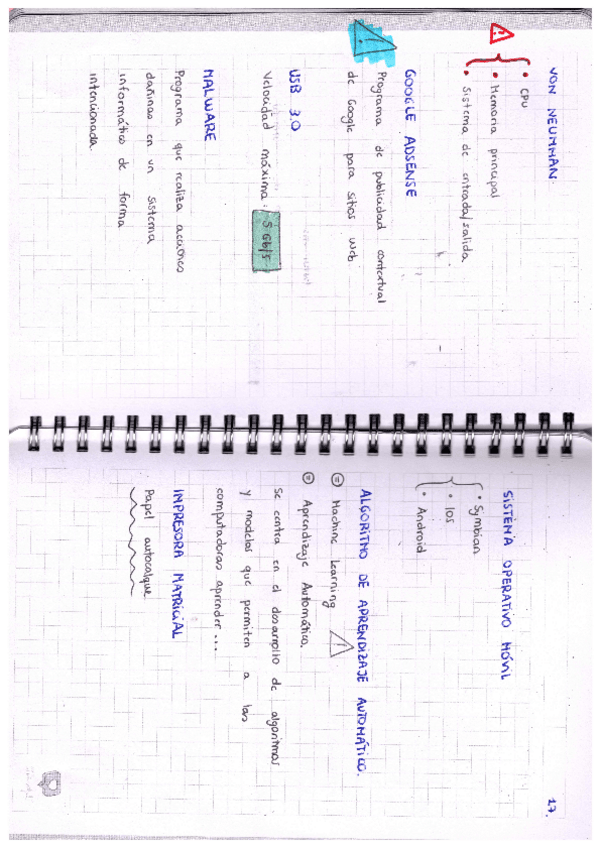 VON NEUMMAN.
• CPU
• Memoria principal
• Sistema de entrada/salida
GOOGLE ADSENSE
Programa de publicidad contextual
de Google para sitios web
USB 3.0
Velocidad máxima: 5 Gb/s
MALWARE
Programa que realiza acciones
dañinas en un sistema
informático de forma
intencionada.
17.
SISTEMA OPERATIVO MÓVIL
• Symbian
• IOS
• Android
ALGORITMO DE APRENDIZAJE AUTOMÁTICO.
= Machine Learning
= Aprendizaje Automático.
Se centra en el desarrollo de algoritmos
y modelos que permiten a las
computadoras aprender ...
IMPRESORA MATRICIAL
Papel autocalque